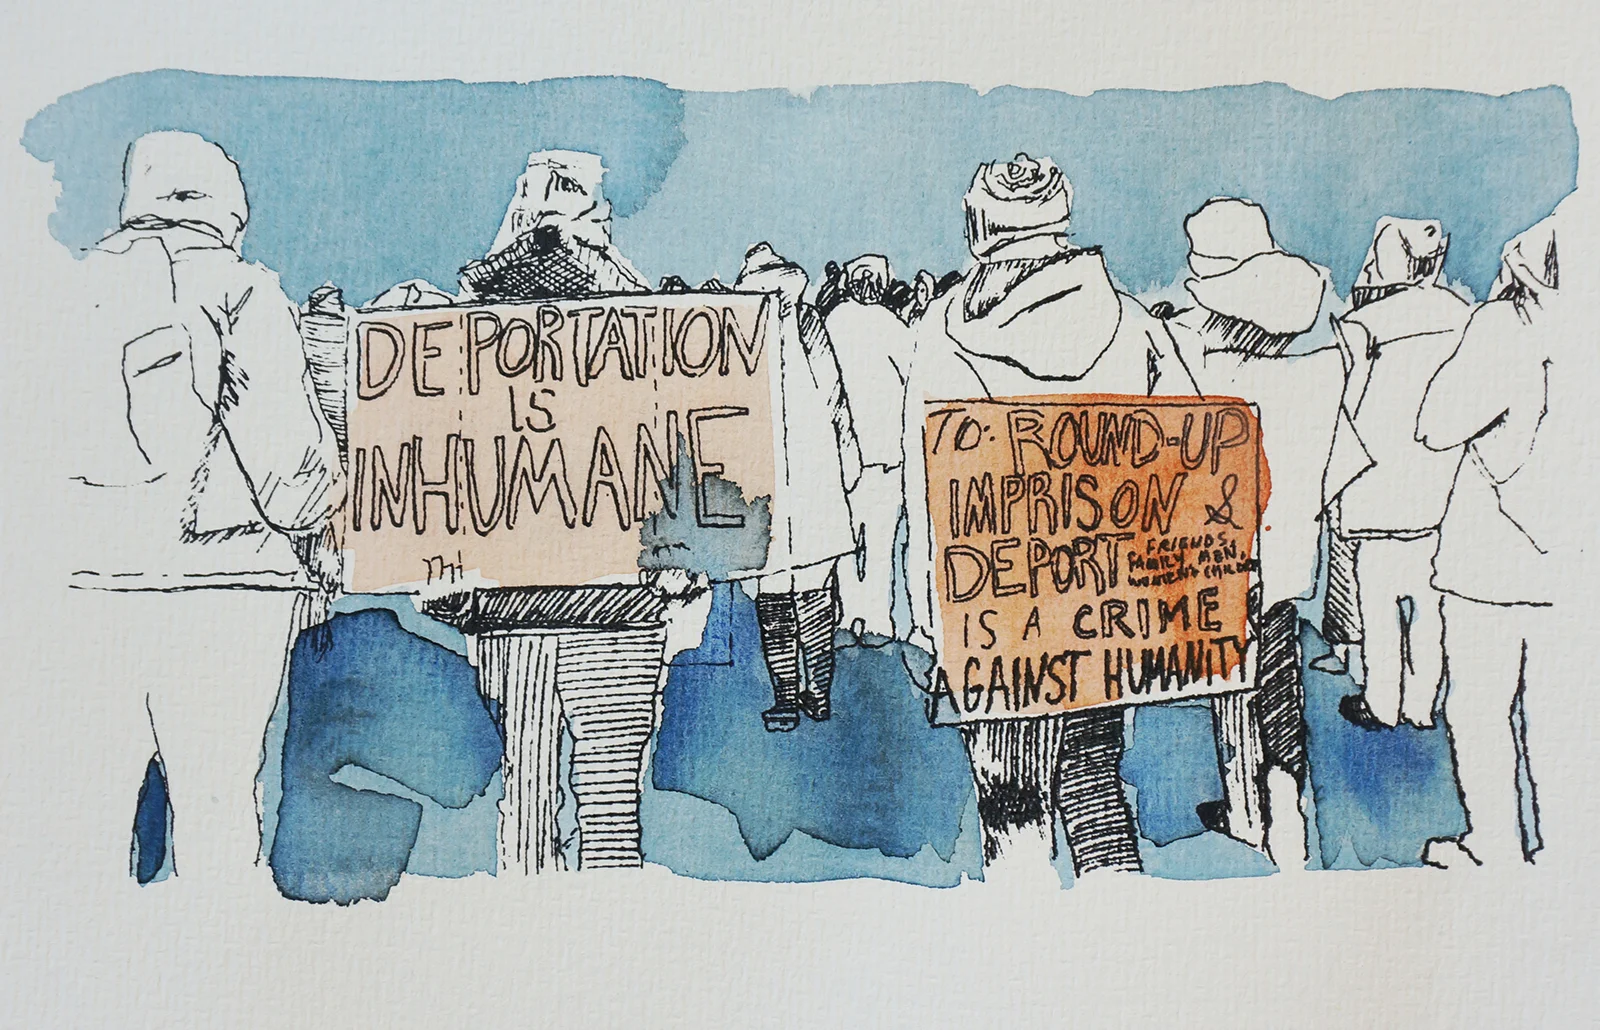 DEPORTATION
IS
INHUMANE
TO: ROUND-UP
IMPRISON &
DEPORT FRIENDS,
FAMILY MEN,
WOMEN & CHILDREN
IS A CRIME
AGAINST HUMANITY